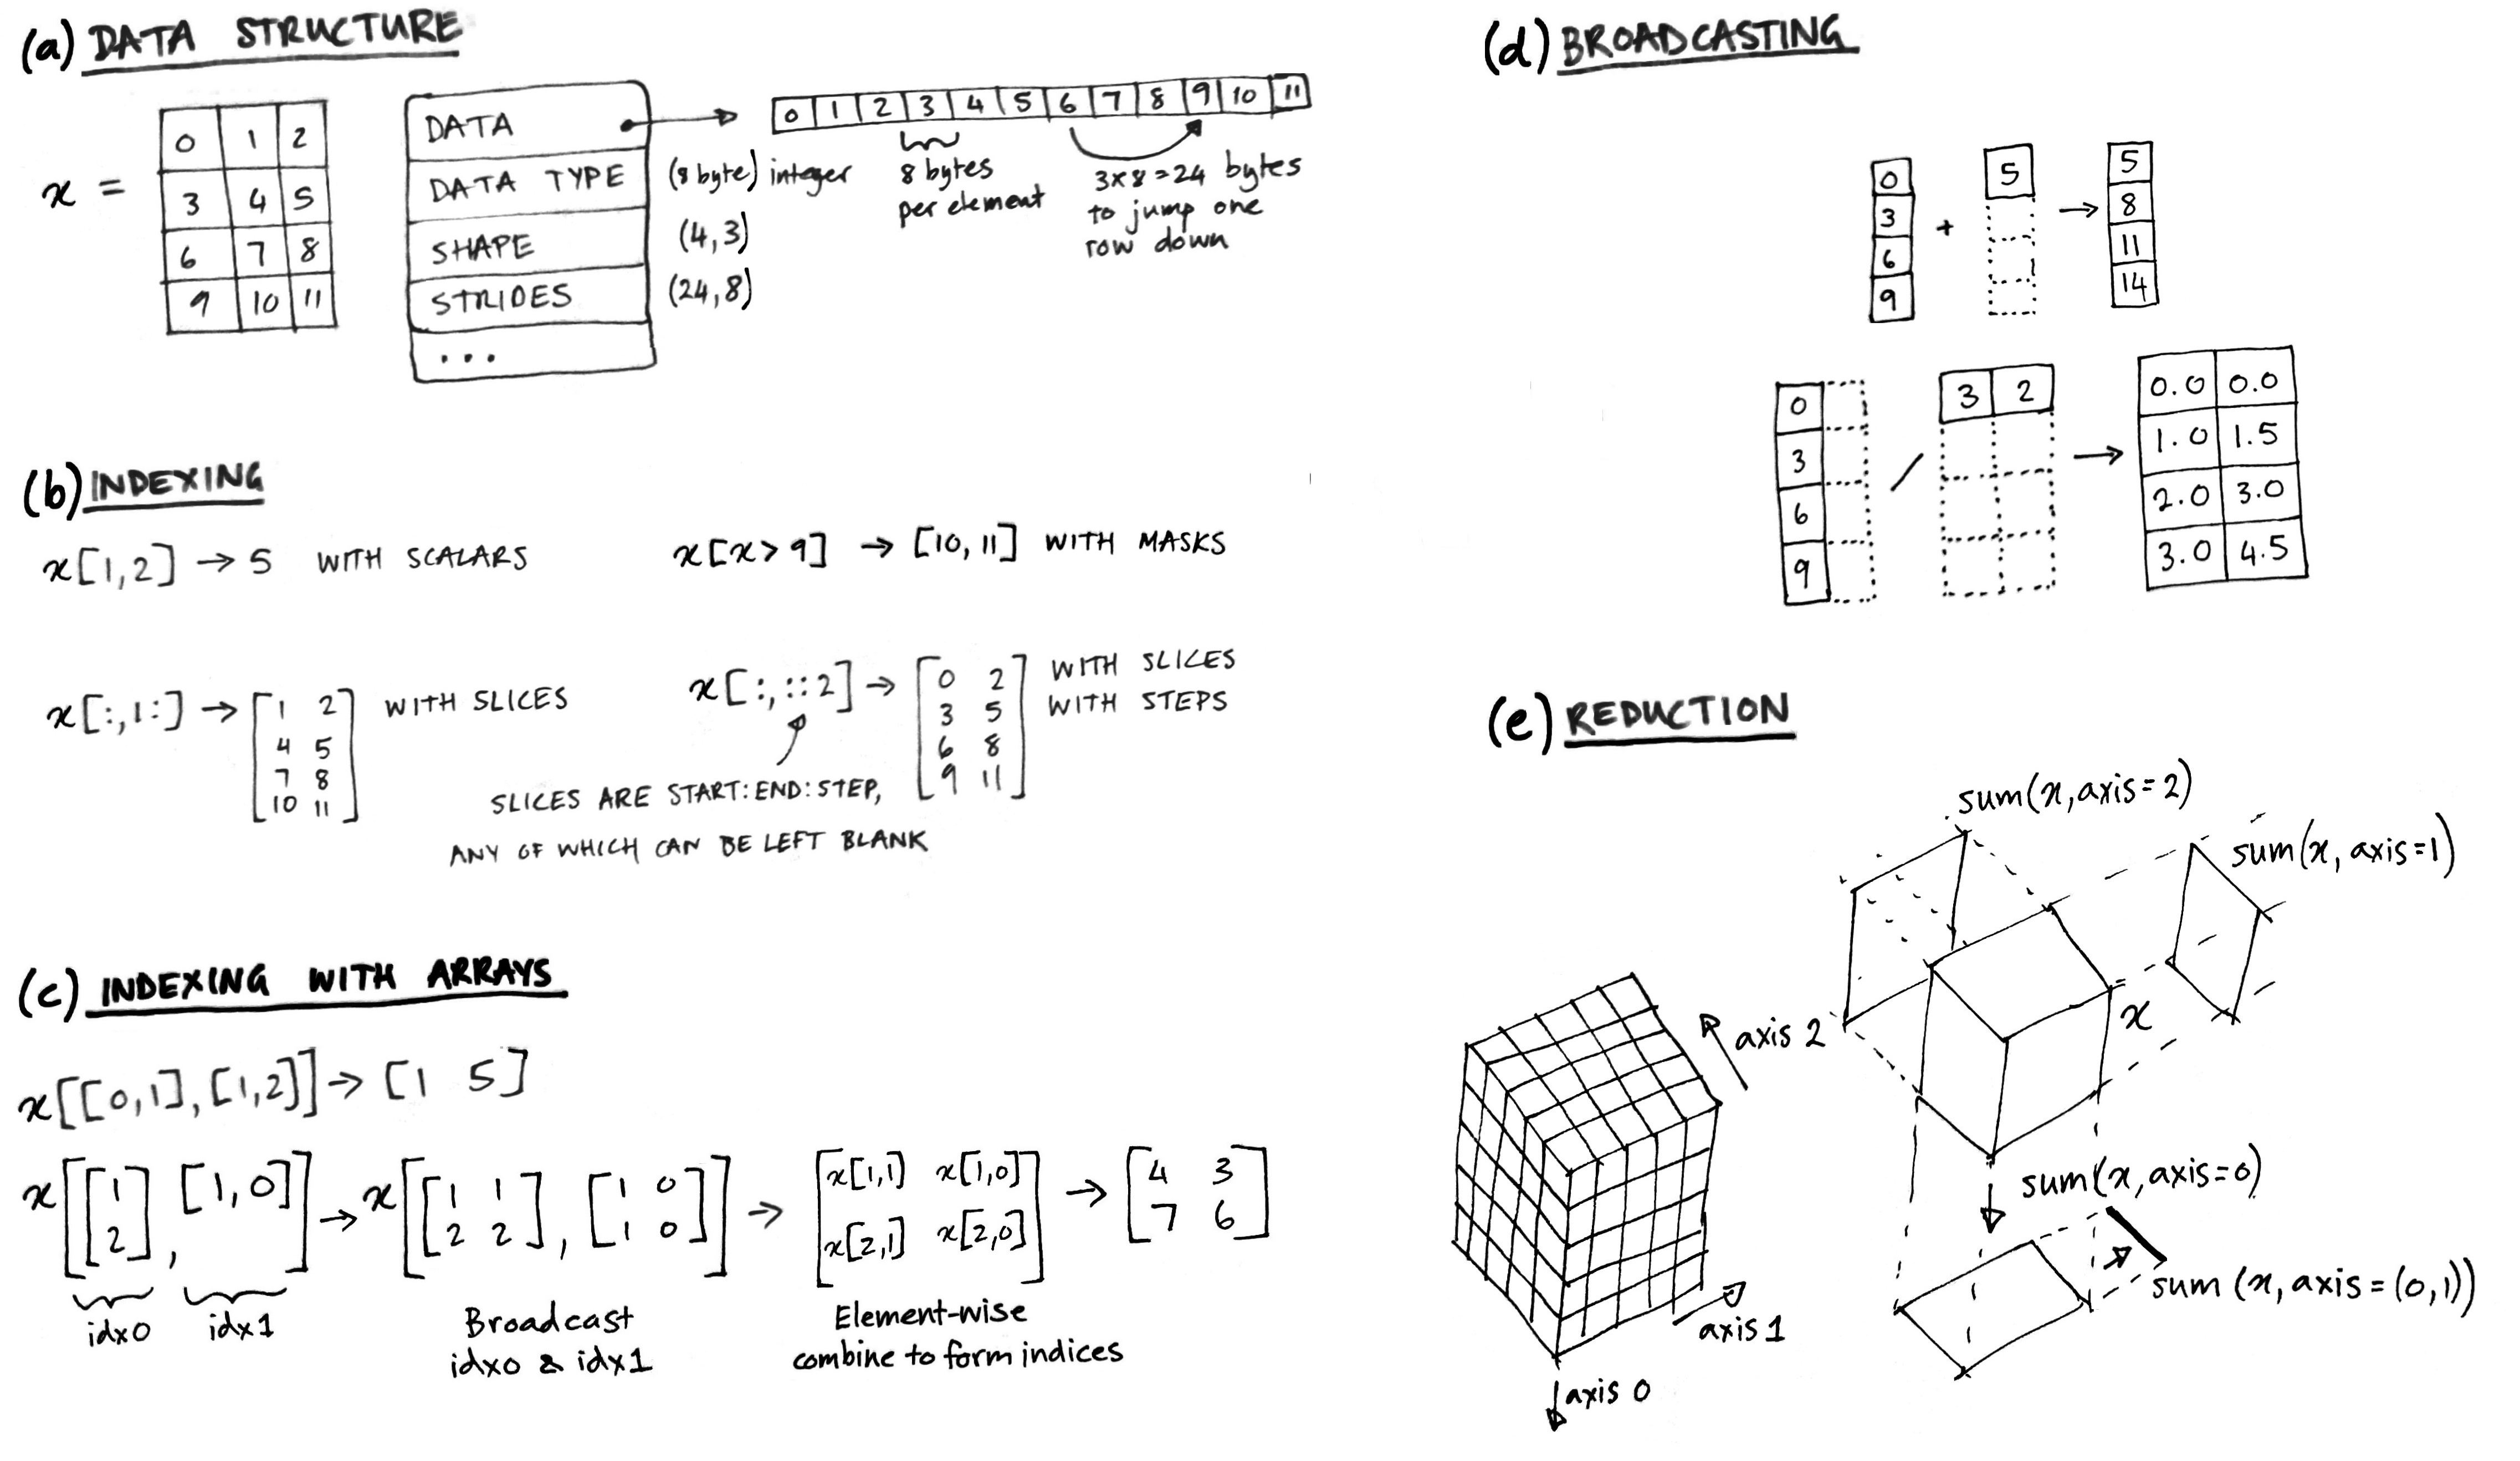 (a) DATA STRUCTURE
x =
0 1 2
3 4 5
6 7 8
9 10 11
DATA
DATA TYPE
SHAPE
STRIDES
...
(8 byte) integer
(4,3)
(24,8)
0 1 2 3 4 5 6 7 8 9 10 11
8 bytes
per element
3x8=24 bytes
to jump one
row down
(b) INDEXING
x[1,2] → 5 WITH SCALARS
x[x>9] → [10,11] WITH MASKS
x[:,1:] → [1 2 WITH SLICES
4 5
7 8
10 11]
x[:,::2] → [0 2
3 5
6 8
9 11]
WITH SLICES
WITH STEPS
SLICES ARE START:END:STEP,
ANY OF WHICH CAN BE LEFT BLANK
(c) INDEXING WITH ARRAYS
x[[0,1],[1,2]] → [1 5]
x[[1
2], [1,0]] → x[[1 1
2 2], [1 0
1 0]] → [x[1,1] x[1,0]
x[2,1] x[2,0]] → [4 3
7 6]
idx0 idx1
Broadcast
idx0 & idx1
Element-wise
combine to form indices
(d) BROADCASTING
0
3
6
9
+
5
→
5
8
11
14
0
3
6
9
/
3 2
→
0.0 0.0
1.0 1.5
2.0 3.0
3.0 4.5
(e) REDUCTION
sum(x,axis=2)
sum(x,axis=1)
axis 2
x
sum(x,axis=0)
sum(x,axis=(0,1))
axis 1
axis 0